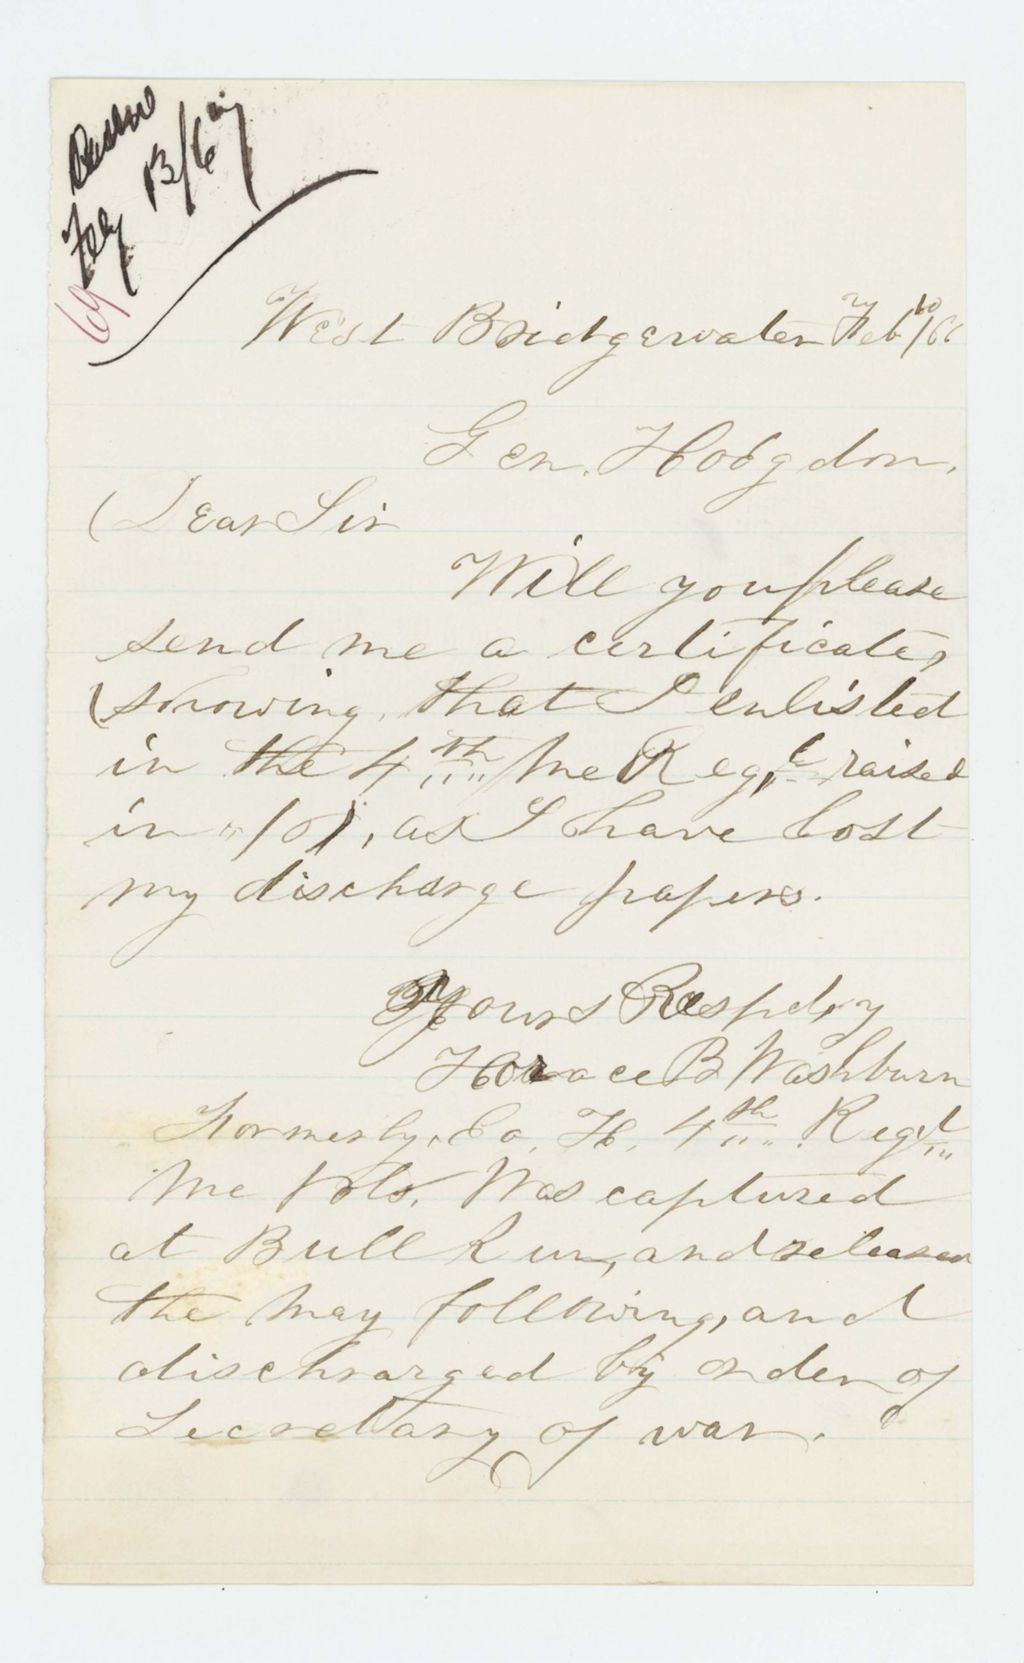 Feby 13/67
69
West Bridgewater Feby 10/66
Gen. Hodgdon,
Dear Sir
Will you please
send me a certificate,
showing, that I enlisted
in the 4th Me Regt raised
in "/61, as I have lost
my discharge papers.
Yours Respctly
Horace B Washburn
Formerly, Co. H. 4th Regt
Me Vols. Was captured
at Bull Run, and released
the May following, and
discharged by order of
Secretary of war.